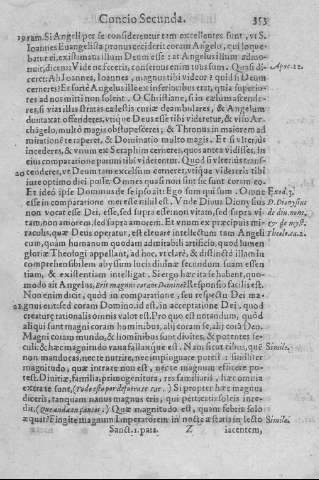 Concio Secunda. 353
19 oram. Si Angeli per se considerentur tam excellentes sunt, vt S.
Ioannes Euangelista pronus ceciderit coram Angelo, qui loque
batur ei, existimans illum Deum esse: at Angelus illum admo-
nuit, dicens: Vide ne feceris, conseruus enim tuus sum. Quasi di-
Apoc. 22.
ceret: Ah Ioannes, Ioannes, magnus tibi videor? quid si Deum
cerneres? Et si iste Angelus ille ex inferioribus erat, quia superio-
res ad nos mitti non solent. O Christiane, si in cælum ascende-
res, si vias illas stratas cælestis curiæ deambulares, & Angelum
duntaxat offenderes, vtique Deus esse tibi videretur, & viso Ar-
chãgelo, multò magis obstupesceres; & Thronus in maiorem ad
mirationé te raperet, & Dominatio multò magis. Et si vlteriùs
incederes, & vnum ex Seraphim cerneres, quos antea vidisses, in
eius comparatione parum tibi viderétur. Quod si vlteriùs trans-
20 cederes, vt Deum tam excelsum cerneres, vtique videreris tibi
iure optimo dici posse, Omnes quasi non sint sic sunt coram eo.
Et ideò ipse Dominus de se ipso ait: Ego sum qui sum. Omne
Exod. 3.
esse in comparatione mei esse nihil est. Vnde Diuus Dionysius
D. Dionysius
non vocat esse Dei, esse, sed supra esse: non vitam, sed supra vi-
de diu. nom.
tam, non amorem, sed supra amorem. Et vnum ex præcipuis mi-
& de myst.
raculis, quæ Deus operatur, est eleuare intellectum tam Angeli
Theolo. ca. 2.
cum, quàm humanum quodam admirabili artificio, quod lumen
gloriæ Theologi appellant, ad hoc, vt clarè, & distinctè illum in
comprehensibilem abyssum lucis diuinæ secundum suam essen
tiam, & existentiam intelligat. Si ergo hæc ita se habent, quo-
modo ait Angelus, Erit magnus coram Domino? Responsio facilis est.
Non enim dicit, quòd in comparatione, seu respectu Dei ma-
21 gnus erit: sed coram Domino, id est, in acceptatione Dei, quod
creaturæ rationalis omnis valor est. Pro quo est notandum, quòd
aliqui sunt magni coram hominibus, alij coram se, alij corã Deo.
Magni coram mundo, & hominibus sunt diuites, & potentes se-
culi: & hæc magnitudo vana fallaxque est. Nam sicut cibus, qué
Simile.
non manducas, nec te nutrire, nec impinguare potest: similiter
magnitudo, quæ intra te non est, nec te magnum efficere po-
test. Diuitiæ, familia, primogenitura, res familiaris, hæc omnia
extra te sunt. Si propter hæc magnus
diceris, tanquam nanus magnus eris, qui perticatis soleis ince-
dit. Quæ magnitudo est, quam febris solo
æquat? Fingite magnum Imperatorem in nocte æstatis in lecto
Simile.
Sanct. 1. pars. Z iacentem,